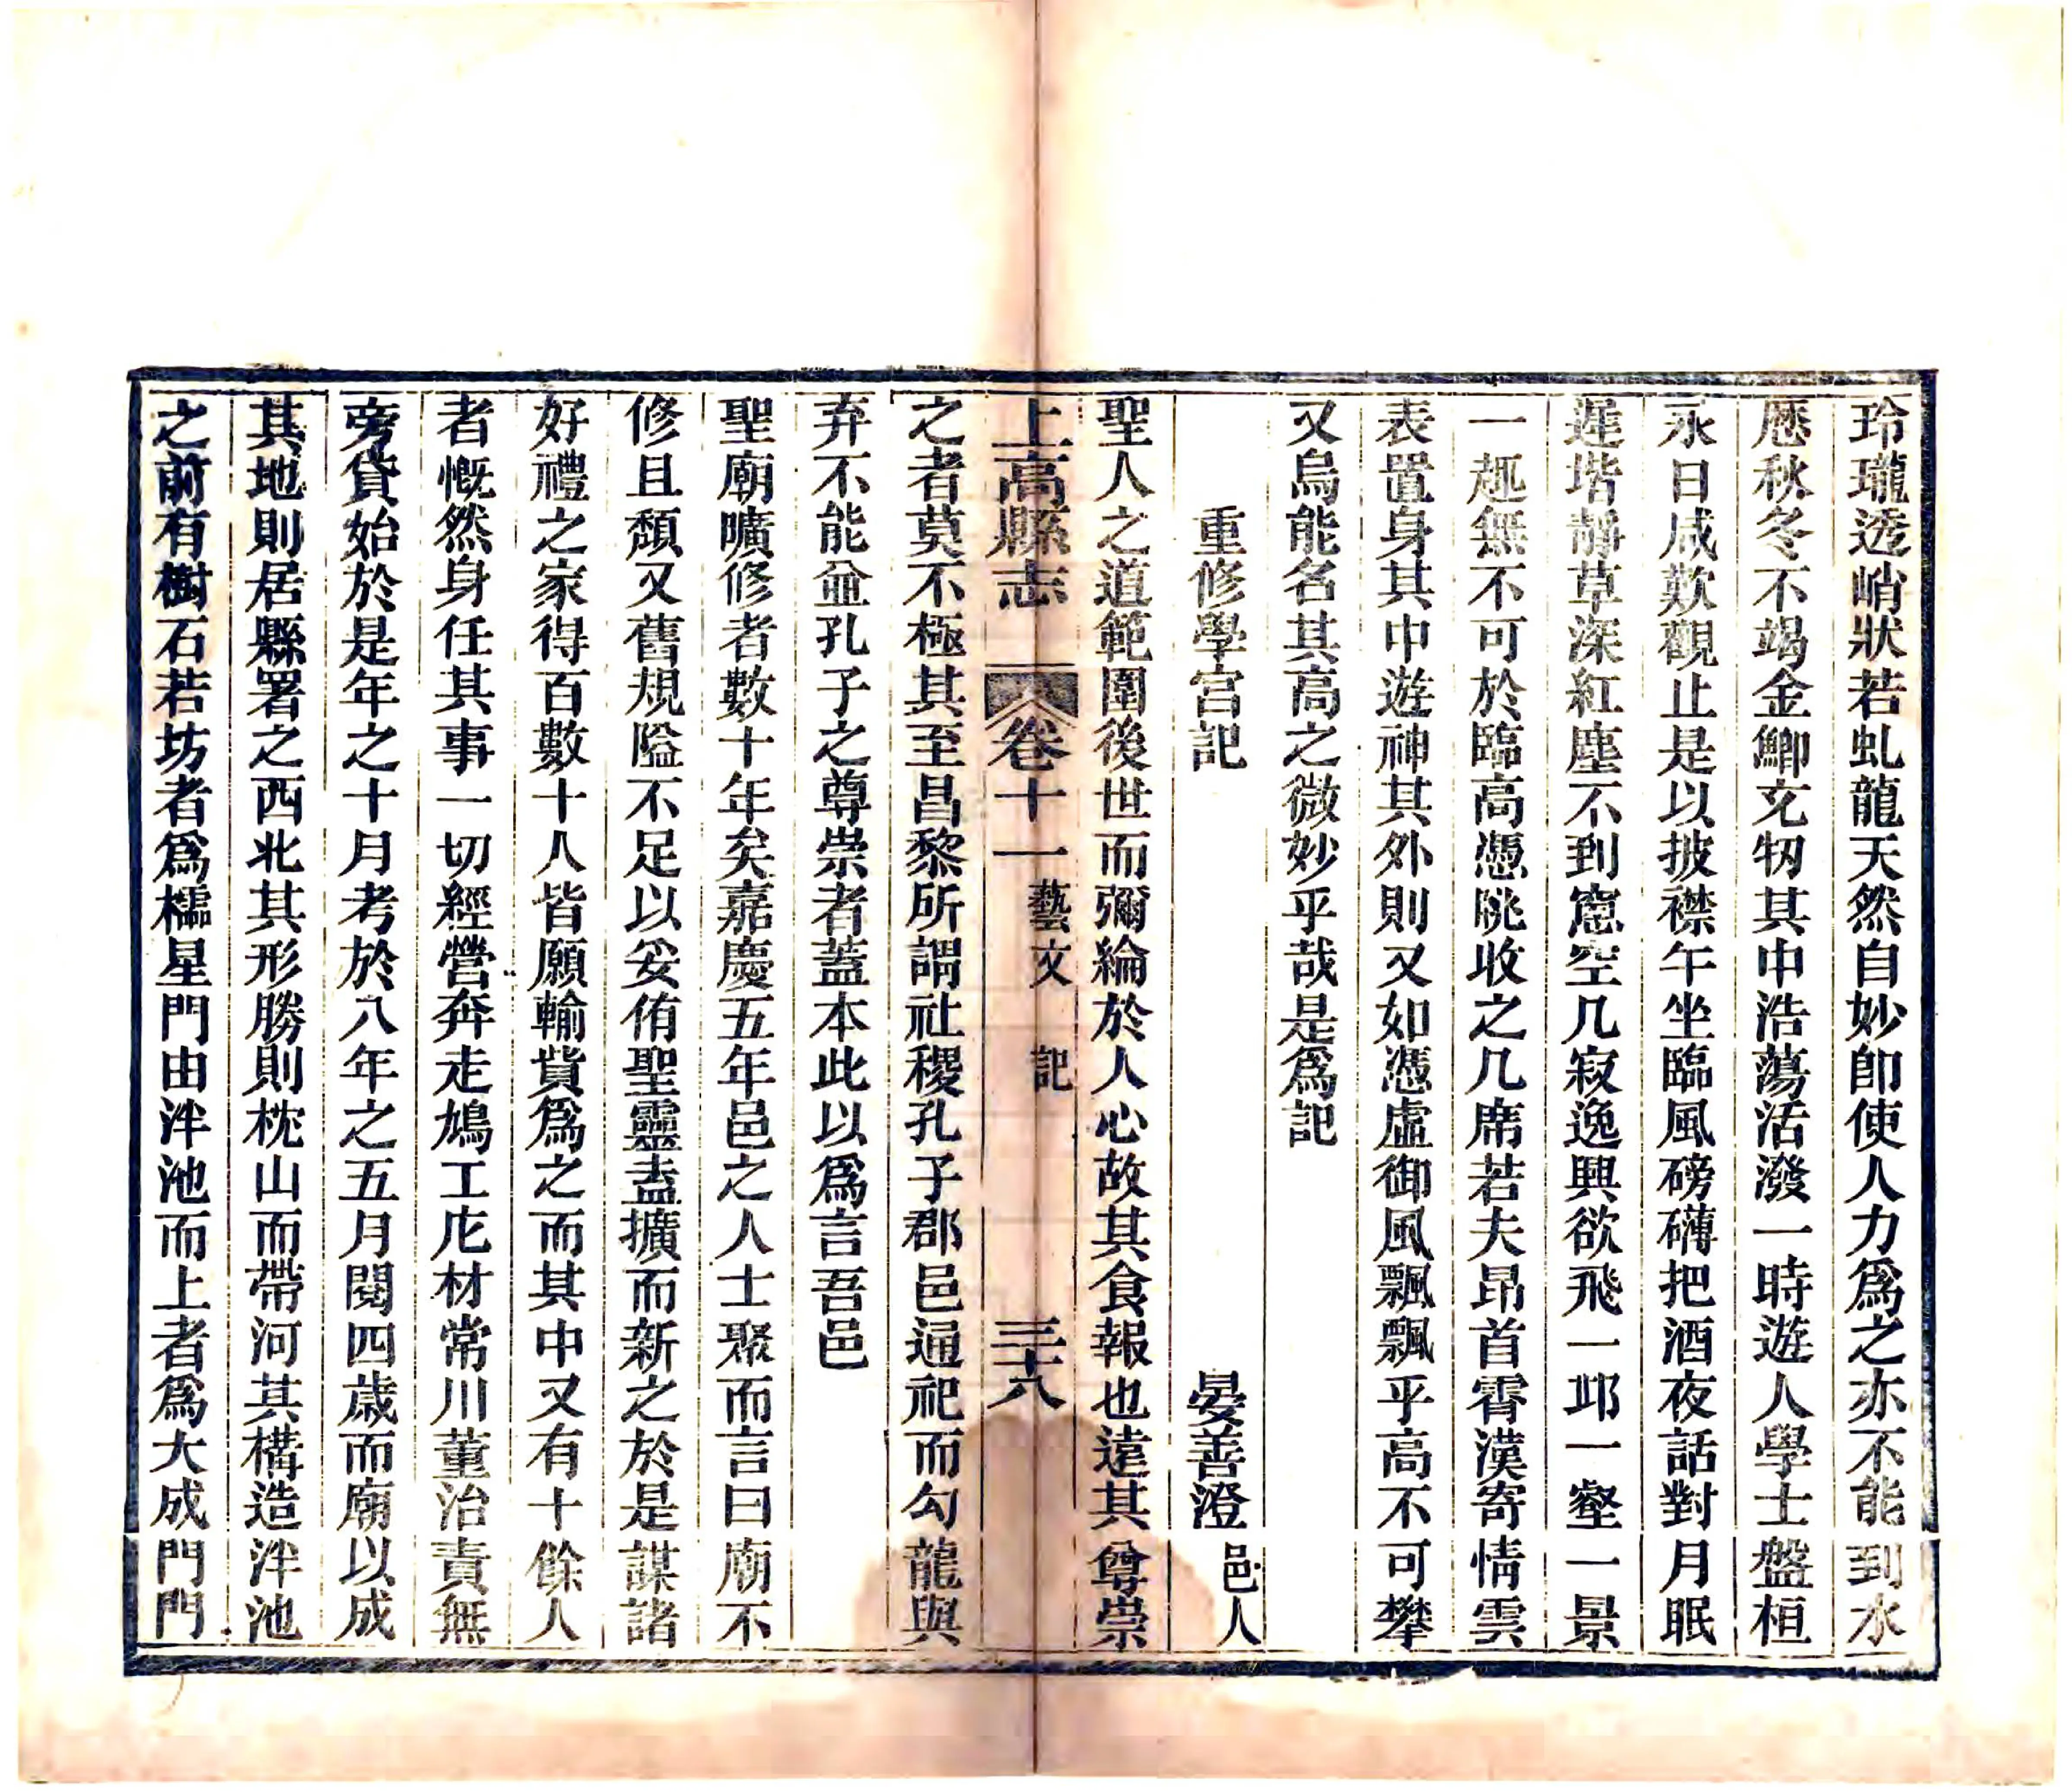 玲瓏透峭狀若虬龍天然自妙卽使人力爲之亦不能到水
歷秋冬不竭金鯽充牣其中浩蕩活潑一時遊人學士盤桓
永日咸歎觀止是以披襟午坐臨風磅礴把酒夜話對月眠
遲堦靜草深紅塵不到窻空几寂逸興欲飛一邱一壑一景
一趣無不可於臨高憑眺收之几席若夫昂首霄漢寄情雲
表置身其中遊神其外則又如憑虛御風飄飄乎高不可攀
又烏能名其高之微妙乎哉是爲記
重修學宫記 晏善澄 邑人
聖人之道範圍後世而彌綸於人心故其食報也遠其尊崇
上高縣志 卷十一 藝文 記 三十八
之者莫不極其至昌黎所謂社稷孔子郡邑通祀而勾龍與
弃不能並孔子之尊崇者蓋本此以爲言吾邑
聖廟曠修者數十年矣嘉慶五年邑之人士聚而言曰廟不
修且頹又舊規隘不足以妥侑聖靈盍擴而新之於是謀諸
好禮之家得百數十人皆願輸貲爲之而其中又有十餘人
者慨然身任其事一切經營奔走鳩工庀材常川董治責無
旁貸始於是年之十月考於八年之五月閱四歲而廟以成
其地則居縣署之西北其形勝則枕山而帶河其構造泮池
之前有樹石若坊者爲櫺星門由泮池而上者爲大成門門